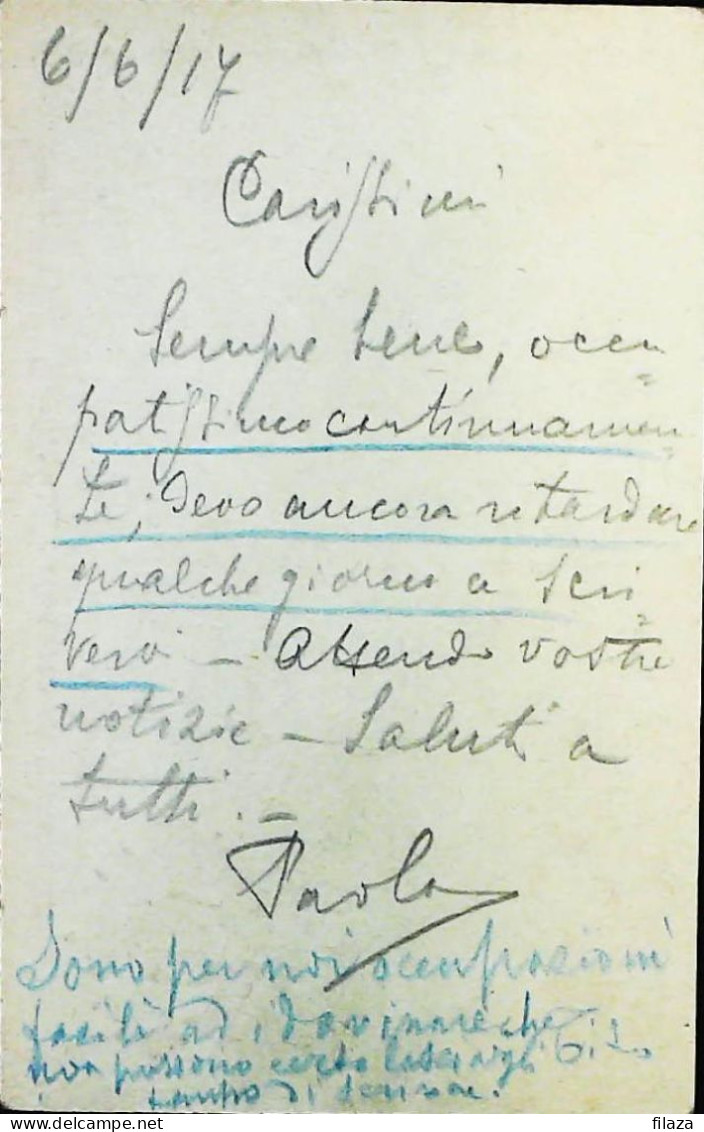 6/6/17
Carissimi
Sempre bene, occu=
patissimo continuamen=
te, devo ancora ritardare
qualche giorno a scri=
vervi - Attendo vostre
notizie - Saluti a
tutti. -
Paolo
Sono per noi occupazioni
facili ad indovinare che
non possono certo
tempo di scrivere.
filaza